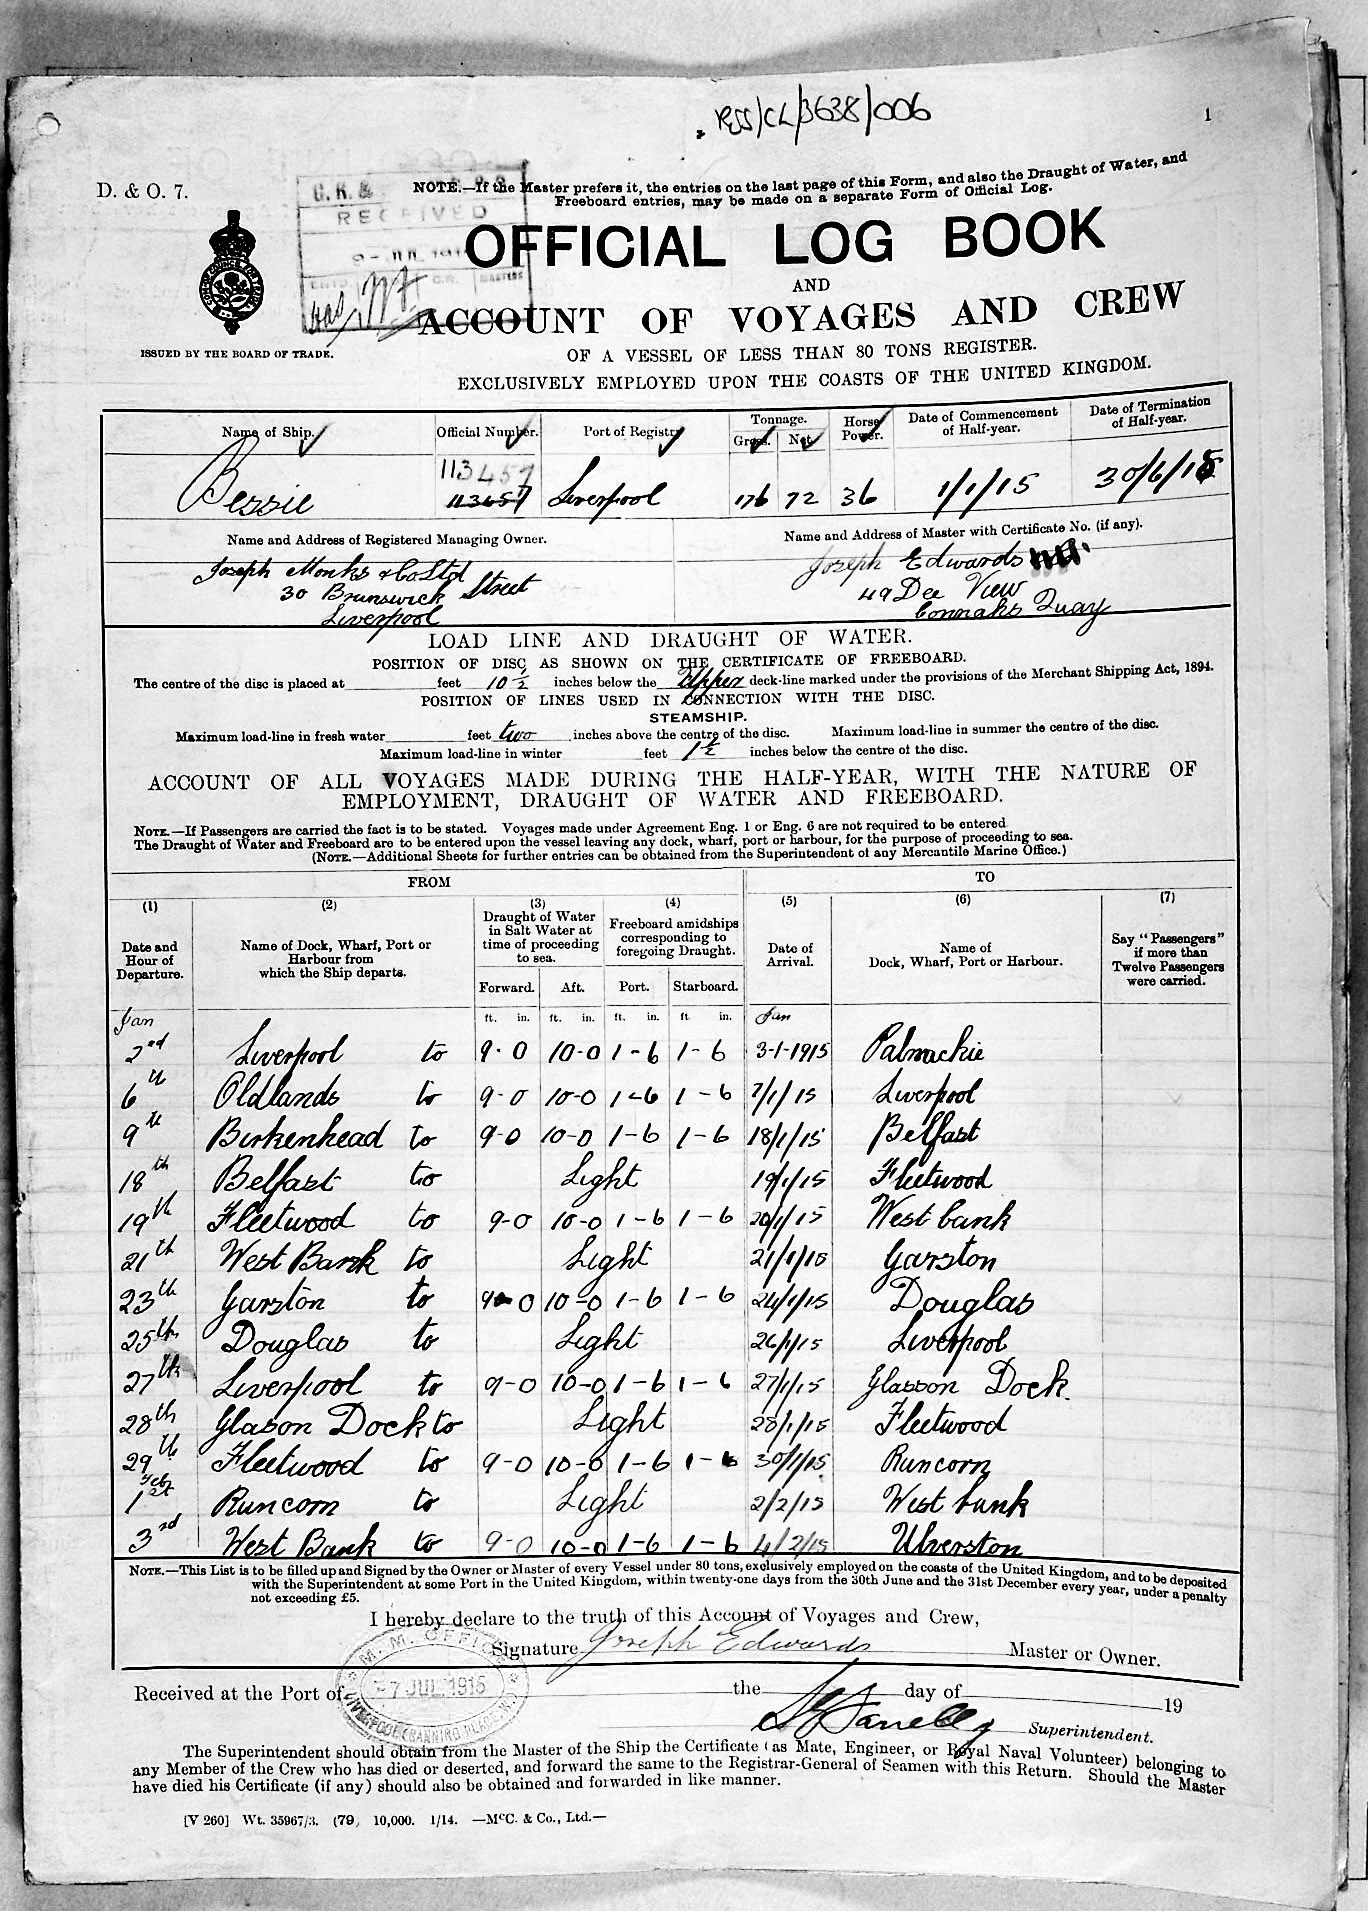 RSS/CL/3638/006
1
D. & O. 7.
NOTE.—If the Master prefers it, the entries on the last page of this Form, and also the Draught of Water, and
Freeboard entries, may be made on a separate Form of Official Log.
RECEIVED
OFFICIAL LOG BOOK
AND
ACCOUNT OF VOYAGES AND CREW
ISSUED BY THE BOARD OF TRADE.
OF A VESSEL OF LESS THAN 80 TONS REGISTER.
EXCLUSIVELY EMPLOYED UPON THE COASTS OF THE UNITED KINGDOM.
Name of Ship. Official Number. Port of Registry Tonnage. Gross. Net. Horse Power. Date of Commencement of Half-year. Date of Termination of Half-year.
113457
Bessie 113457 Liverpool 176 72 36 1/1/15 30/6/15
Name and Address of Registered Managing Owner. Name and Address of Master with Certificate No. (if any).
Joseph Monks & Co Ltd Joseph Edwards
30 Brunswick Street 49 Dee View
Liverpool Connahs Quay
LOAD LINE AND DRAUGHT OF WATER.
POSITION OF DISC AS SHOWN ON THE CERTIFICATE OF FREEBOARD.
The centre of the disc is placed at feet 10 1/2 inches below the Upper deck-line marked under the provisions of the Merchant Shipping Act, 1894.
POSITION OF LINES USED IN CONNECTION WITH THE DISC.
STEAMSHIP.
Maximum load-line in fresh water feet two inches above the centre of the disc. Maximum load-line in summer the centre of the disc.
Maximum load-line in winter feet 1 1/2 inches below the centre of the disc.
ACCOUNT OF ALL VOYAGES MADE DURING THE HALF-YEAR, WITH THE NATURE OF
EMPLOYMENT, DRAUGHT OF WATER AND FREEBOARD.
NOTE.—If Passengers are carried the fact is to be stated. Voyages made under Agreement Eng. 1 or Eng. 6 are not required to be entered
The Draught of Water and Freeboard are to be entered upon the vessel leaving any dock, wharf, port or harbour, for the purpose of proceeding to sea.
(NOTE.—Additional Sheets for further entries can be obtained from the Superintendent of any Mercantile Marine Office.)
FROM TO
(1) (2) (3) (4) (5) (6) (7)
Date and Hour of Departure. Name of Dock, Wharf, Port or Harbour from which the Ship departs. Draught of Water in Salt Water at time of proceeding to sea. Freeboard amidships corresponding to foregoing Draught. Date of Arrival. Name of Dock, Wharf, Port or Harbour. Say "Passengers" if more than Twelve Passengers were carried.
Forward. Aft. Port. Starboard.
Jan ft. in. ft. in. ft. in. ft. in. Jan
2nd Liverpool to 9-0 10-0 1-6 1-6 3-1-1915 Palnackie
6th Oldlands to 9-0 10-0 1-6 1-6 7/1/15 Liverpool
9th Birkenhead to 9-0 10-0 1-6 1-6 18/1/15 Belfast
18th Belfast to Light 19/1/15 Fleetwood
19th Fleetwood to 9-0 10-0 1-6 1-6 20/1/15 West bank
21th West Bank to Light 21/1/15 Garston
23th Garston to 9-0 10-0 1-6 1-6 24/1/15 Douglas
25th Douglas to Light 26/1/15 Liverpool
27th Liverpool to 9-0 10-0 1-6 1-6 27/1/15 Glasson Dock.
28th Glason Dock to Light 28/1/15 Fleetwood
29th Fleetwood to 9-0 10-0 1-6 1-6 30/1/15 Runcorn
Feb
1st Runcorn to Light 2/2/15 West bank
3rd West Bank to 9-0 10-0 1-6 1-6 4/2/15 Ulverston
NOTE.—This List is to be filled up and Signed by the Owner or Master of every Vessel under 80 tons, exclusively employed on the coasts of the United Kingdom, and to be deposited
with the Superintendent at some Port in the United Kingdom, within twenty-one days from the 30th June and the 31st December every year, under a penalty
not exceeding £5.
I hereby declare to the truth of this Account of Voyages and Crew,
Signature Joseph Edwards Master or Owner.
M. M. OFFICE
7 JUL 1915
Received at the Port of the day of 19
Superintendent.
The Superintendent should obtain from the Master of the Ship the Certificate (as Mate, Engineer, or Royal Naval Volunteer) belonging to
any Member of the Crew who has died or deserted, and forward the same to the Registrar-General of Seamen with this Return. Should the Master
have died his Certificate (if any) should also be obtained and forwarded in like manner.
[V 260] Wt. 35967/3. (79) 10,000. 1/14. —McC. & Co., Ltd.—